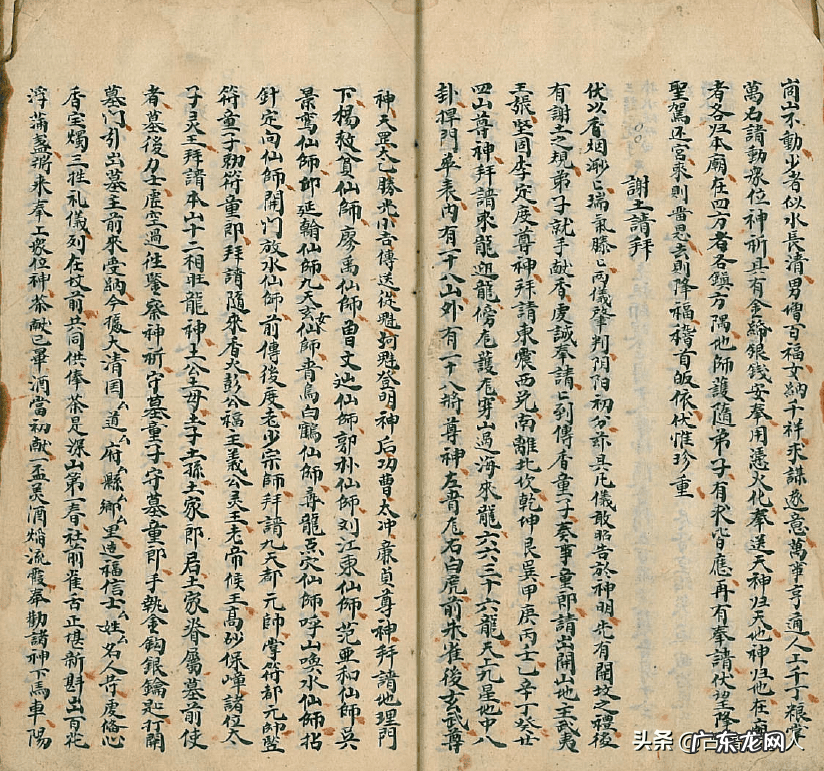 崗山不動少者似水長清男增百福女納千祥求謀遂意萬事亨通人工千丁粮掌
萬石諸動衆位神祈具有金錢銀錢安奉用憑火化奉送天神归天地神归地在廟
者各归本廟在四方者各鎮方隅地師護隨弟子有求皆應再有奉請伏望降
聖駕还宮來則晋恩去則降福稽首皈依伏惟珍重
謝土請拜
伏以香烟渺匕瑞氣騰匕两儀肇判阴阳初分恭具凡儀敢昭告於神明先有開坟之禮後
有謝土之規弟子就手献香虔誠奉請匕到傳香童子奏事童郎請出開山地王武夷
王張堅固李定度尊神拜請東震西兌南離北坎乾坤艮巽甲庚丙壬乙辛丁癸廿
四山尊神拜請來龍迎龍傍龙護龙穿山過海來龍六六三十六龍天上九星地中八
卦捍門華表內有二十八山外有二十八將尊神左青龙右白虎前朱雀後玄武尊
神天罡太乙勝光小吉傳送從魁河魁登明神后功曹太冲廉貞尊神拜請地理門
下楊救貧仙師廖禹仙師曾文辿仙師郭朴仙師刘江東仙師范亜和仙師吳
景鸞仙師邱延翰仙師九天玄女仙師青烏白鶴仙師尊龍点穴仙師呼山喚水仙師指
針定向仙師開門放水仙師前傳後度老少宗師拜請九天都元帥掌符都元帥監
符童子勅符童郎拜請隨來香火彭公福主義公灵王老帝候王高砂保嶂諸位太
子灵王拜請本山十二相旺龍神土公土母土子土孫土家郎君土家眷屬墓前使
者墓後力士虛空過往鑒察神祈守墓童子守墓童郎手执金鈎銀鑰匙打開
墓門引出墓主前來受納今據大清国ム道ム府ム縣ム鄉ム里造福信士ム姓ム名人等虔俻心
香宝燭三牲礼儀列在坟前共同供俸茶是深山第一春社前雀舌正堪新斟出百花
浮蒲盞將來奉上衆位神茶献已畢酒當初献一盃美酒焰流霞奉勸諸神下馬車陽
头条 @广东龙网人